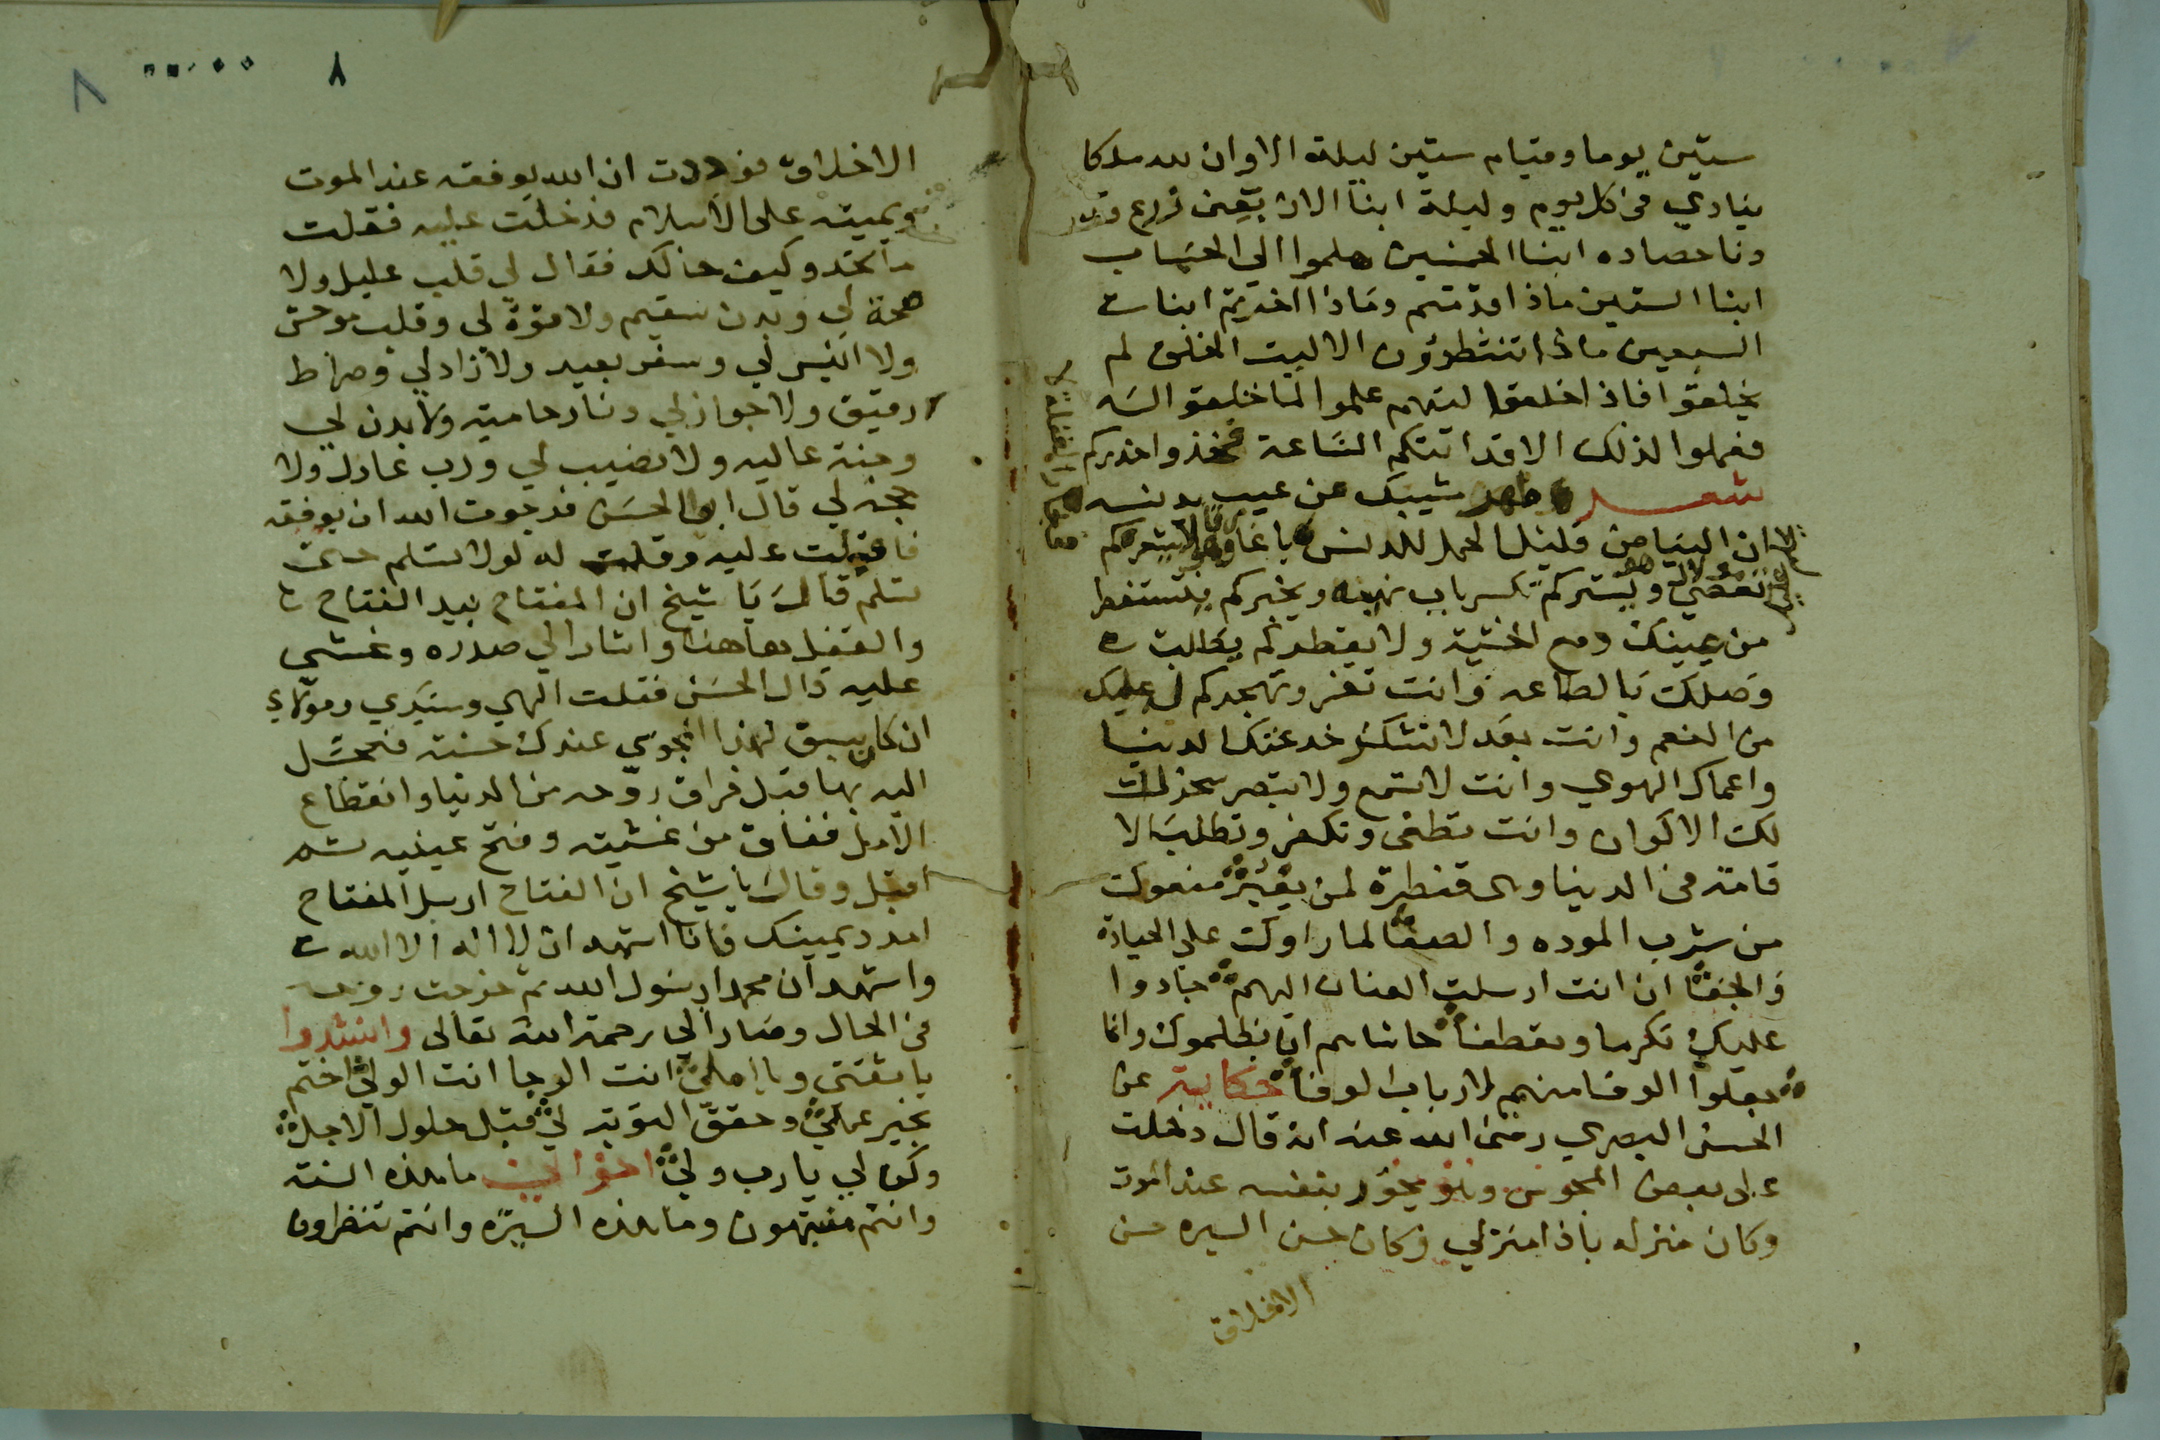 ستين يوما وقيام ستين ليلة الا وان لله ملكا
ينادي في كل يوم وليلة ابنا الاربعين زرع قد
دنا حصاده ابنا الخمسين هلموا الي الحساب
ابنا الستين ماذا قدمتم وماذا اخرتم ابنا
السبعين ماذا تنتظرون الا ليت الخلق لم
يخلقوا فاذا خلقوا ليتهم علموا لما خلقوا اليه
فعملوا لذلك الا قد اتتكم الساعة فخذوا حذركم
شعر طهر شيبك عن عيب يدنسه
ان البياض قليل الحمل للدنس يا غافلا
تعصي ويستركم تكسر باب نهيه ويجبركم
من عينك دمع الخشية ولا يقطر كم يطالب
وصلك بالطاعه وانت تفر وتهجر كم له عليك
من النعم وانت بعد لا تشكر خدعتك الدنيا
واعماك الهوي وانت لا تسمع ولا تبصر سخرت
لك الاكوان وانت تطغى وتكفر وتطلب الا
قامة في الدنيا وهى قنطرة لمن يعبر منعوك
من شرب الموده والصفا لما راوك على الخيانة
والجفا ان انت ارسلت العنان اليهم جادوا
عليك تكرما وتعطفا حاشاهم ان يظلموك وانما
جعلوا الوفا منهم لارباب الوفا حكاية عن
الحسن البصري رضى الله عنه انه قال دخلت
على بعض المجوس وهو يجود بنفسه عند الموت
وكان منزله باذا منزلي وكان حسن السيره حسن
الاخلاق
٨
الاخلاق فوددت ان الله يوفقه عند الموت
ويميته على الاسلام فدخلت عليه فقلت
ما تجد وكيف حالك فقال لي قلب عليل ولا
صحة لي وبدن سقيم ولا قوة لي وقلب موحش
ولا انيس لي وسفر بعيد ولا زاد لي وصراط
دقيق ولا جواز لي ونار حاميه ولا بدن لي
وجنة عاليه ولا نصيب لي ورب عادل ولا
حجه لي قال ابو الحسن فرجوت الله ان يوفقه
فاقبلت عليه وقلت له لم لا تسلم حتى
تسلم قال يا شيخ ان المفتاح بيد الفتاح
والقفل هاهنا واشار الي صدره وغشي
عليه قال الحسن فقلت الهي وسيدي ومولاي
ان كان سبق لهذا المجوسي عندك حسنه فعجل
اليه بها قبل فراق روحه من الدنيا وانقطاع
الامل ففاق من غشيته وفتح عينيه ثم
اقبل وقال يا شيخ ان الفتاح ارسل المفتاح
امدد يمينك فانا اشهد ان لا اله الا الله
واشهد ان محمدا رسول الله ثم خرجت روحه
في الحال وصار الي رحمة الله تعالى وانشدوا
يا ثقتي ويا املي انت الرجا انت الولي اختم
بخير عملي وحقق التوبه لي قبل حلول الاجل
وكن لي يا رب ولي اخواني ما هذه السنه
وانتم منتبهون وما هذه الحيره وانتم تنظرون